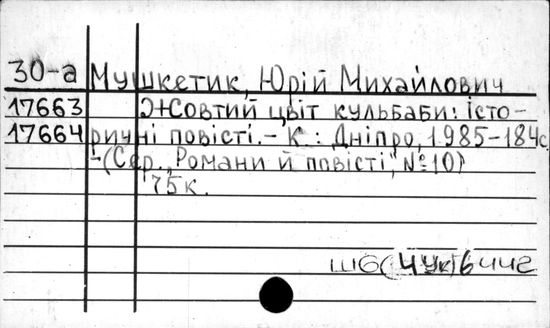 30-а Мушкетик, Юрій Михайлович
17663 Жовтий цвіт кульбаби: істо-
17664 ричні повісті. – К.: Дніпро, 1985 – 184с.
– (Сер. „Романи й повісті", №10)
75к.
Ш6(4Ук)6 Ч42